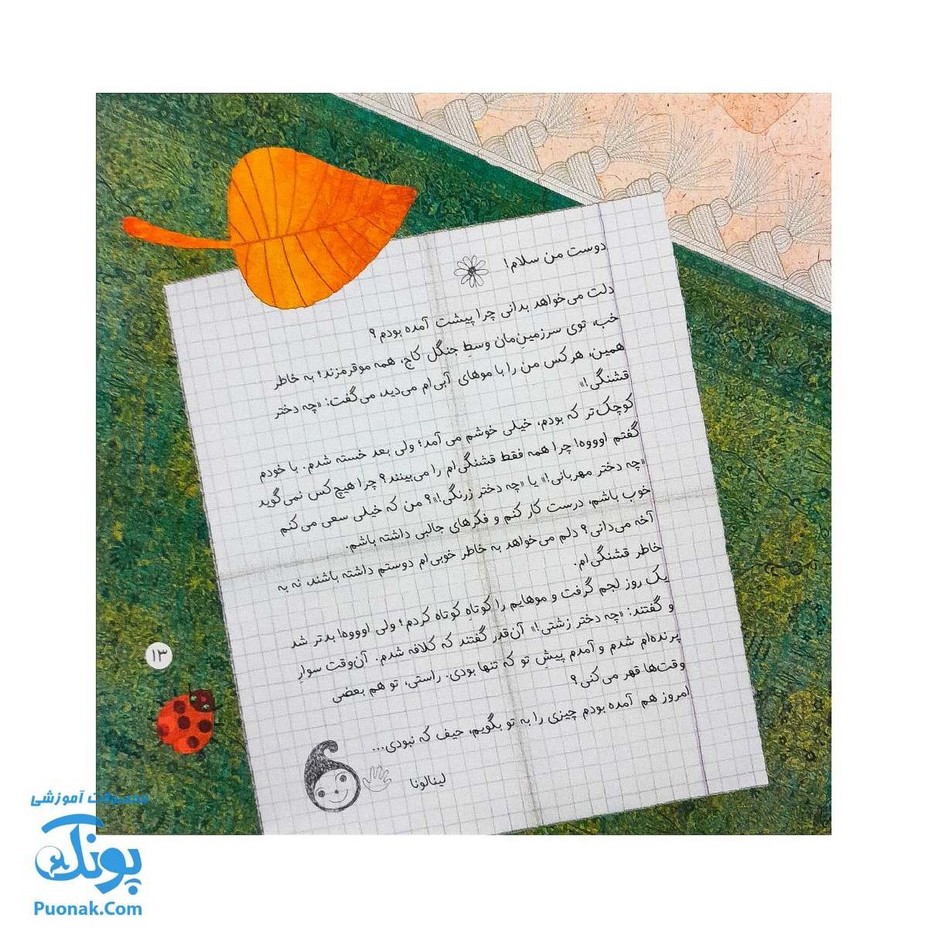 دوست من سلام!
دلت می‌خواهد بدانی چرا پیشت آمده بودم؟
خب، توی سرزمین‌مان وسطِ جنگل کاج، همه موقرمزند؛ به خاطر
همین، هر کس من را با موهای آبی‌ام می‌دید، می‌گفت: «چه دختر
قشنگی!»
کوچک‌تر که بودم، خیلی خوشم می‌آمد؛ ولی بعد خسته شدم. با خودم
گفتم اوووه! چرا همه فقط قشنگی‌ام را می‌بینند؟ چرا هیچ‌کس نمی‌گوید
«چه دختر مهربانی!» یا «چه دختر زرنگی!»؟ من که خیلی سعی می‌کنم
خوب باشم، درست کار کنم و فکرهای جالبی داشته باشم.
آخه می‌دانی؟ دلم می‌خواهد به خاطر خوبی‌ام دوستم داشته باشند، نه به
خاطر قشنگی‌ام.
یک روز لجم گرفت و موهایم را کوتاهِ کوتاه کردم؛ ولی اوووه! بدتر شد
و گفتند: «چه دختر زشتی!» آن‌قدر گفتند که کلافه شدم. آن‌وقت سوارِ
پرنده‌ام شدم و آمدم پیش تو که تنها بودی. راستی، تو هم بعضی
وقت‌ها قهر می‌کنی؟
امروز هم آمده بودم چیزی را به تو بگویم، حیف که نبودی...
لینالونا
۱۳
آموزشی
پونک
Puonak.Com